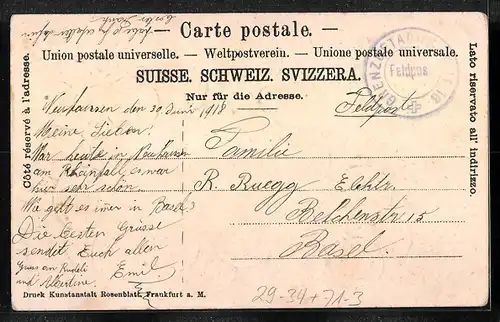 — Carte postale. —
Union postale universelle. – Weltpostverein. – Unione postale universale.
SUISSE. SCHWEIZ. SVIZZERA.
Nur für die Adresse.
Côté réservé à l'adresse.
Lato riservato all' indirizzo.
Feldpos
Feldpost
Neuhausen den 30 Juni 1918
Meine Lieben.
War heute in Neuhausen
am Rheinfall es war
hür sehr schön.
Wie gett es imer in Basel
Die besten Grüsse
sendet Euch allen
Emil.
Gruss an Rudeli
und Albertine
Familie
R. Ruegg Elektr.
Belchenstr 15
Basel.
Druck Kunstanstalt Rosenblatt, Frankfurt a. M.
29-34+71-3